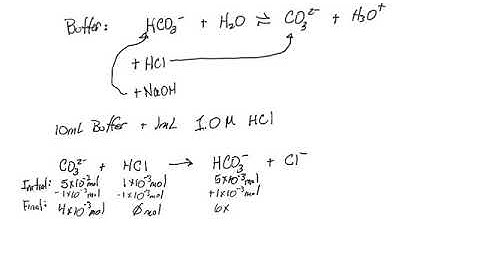 Buffer: HCO₃⁻ + H₂O ⇌ CO₃²⁻ + H₃O⁺
+ HCl
+ NaOH
10mL Buffer + 1mL 1.0 M HCl
CO₃²⁻ + HCl → HCO₃⁻ + Cl⁻
Initial: 5×10⁻³mol 1×10⁻³mol 5×10⁻³mol
-1×10⁻³mol -1×10⁻³mol +1×10⁻³mol
Final: 4×10⁻³mol 0 mol 6×